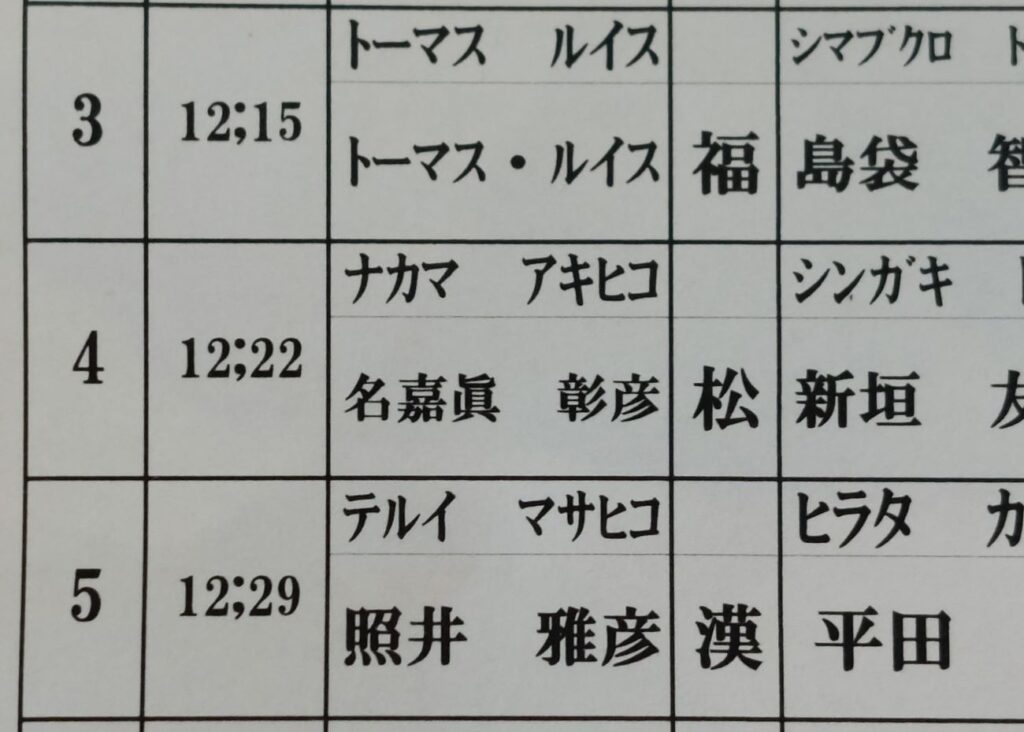 トーマス ルイス シマブクロ
3 12;15 トーマス・ルイス 福 島袋
ナカマ アキヒコ シンガキ
4 12;22 名嘉眞 彰彦 松 新垣 友
テルイ マサヒコ ヒラタ カ
5 12;29 照井 雅彦 漢 平田